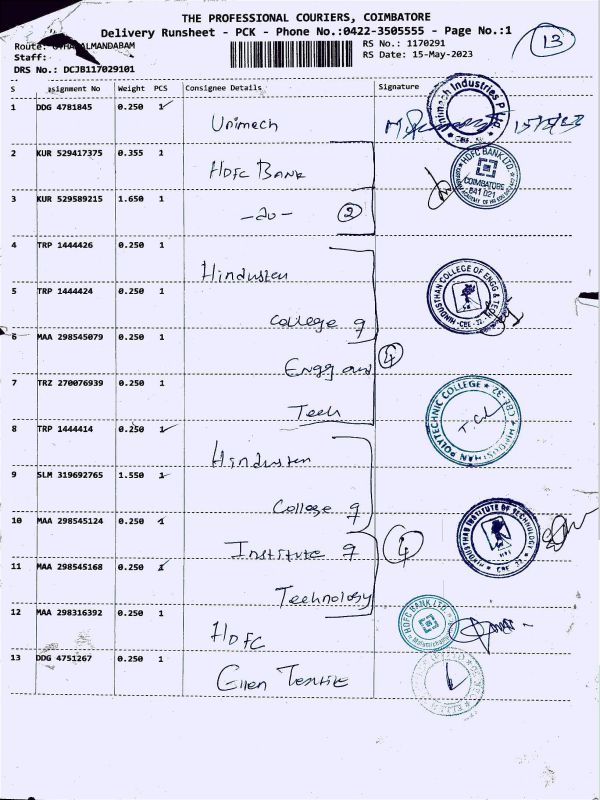 THE PROFESSIONAL COURIERS, COIMBATORE
Delivery Runsheet - PCK - Phone No.:0422-3505555 - Page No.:1
13
Route: ALMANDABAM
RS No.: 1170291
Staff:
RS Date: 15-May-2023
DRS No.: DCJB117029101
S ssignment No Weight PCS Consignee Details Signature
1 DDG 4781845 0.250 1 Unimech
Unimech Industries P Ltd
15/5/23
2 KUR 529417375 0.355 1 HDFC BANK
HDFC BANK LTD.
COIMBATORE
641 021
3 KUR 529589215 1.650 1 -do- 2
4 TRP 1444426 0.250 1 Hindusten
HINDUSTHAN COLLEGE OF ENGG & TECH
5 TRP 1444424 0.250 1 College of
6 MAA 298545079 0.250 1 Engg and 4
7 TRZ 270076939 0.250 1 Tech
HINDUSTHAN POLYTECHNIC COLLEGE * CBE-32 *
8 TRP 1444414 0.250 1 Hindusten
9 SLM 319692765 1.550 1 College of
10 MAA 298545124 0.250 1 Institute of 4
HINDUSTHAN INSTITUTE OF TECHNOLOGY
11 MAA 298545168 0.250 1 Technology
12 MAA 298316392 0.250 1 HDFC
HDFC BANK LTD.
13 DDG 4751267 0.250 1 Glen Textile